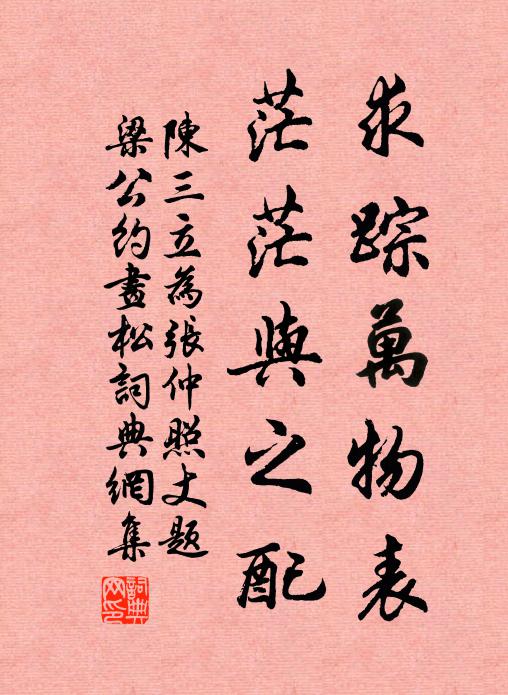 求踪萬物表
茫茫與之配
陳三立為張仲照丈題
梁公約畫松詞典網集
詞典網印